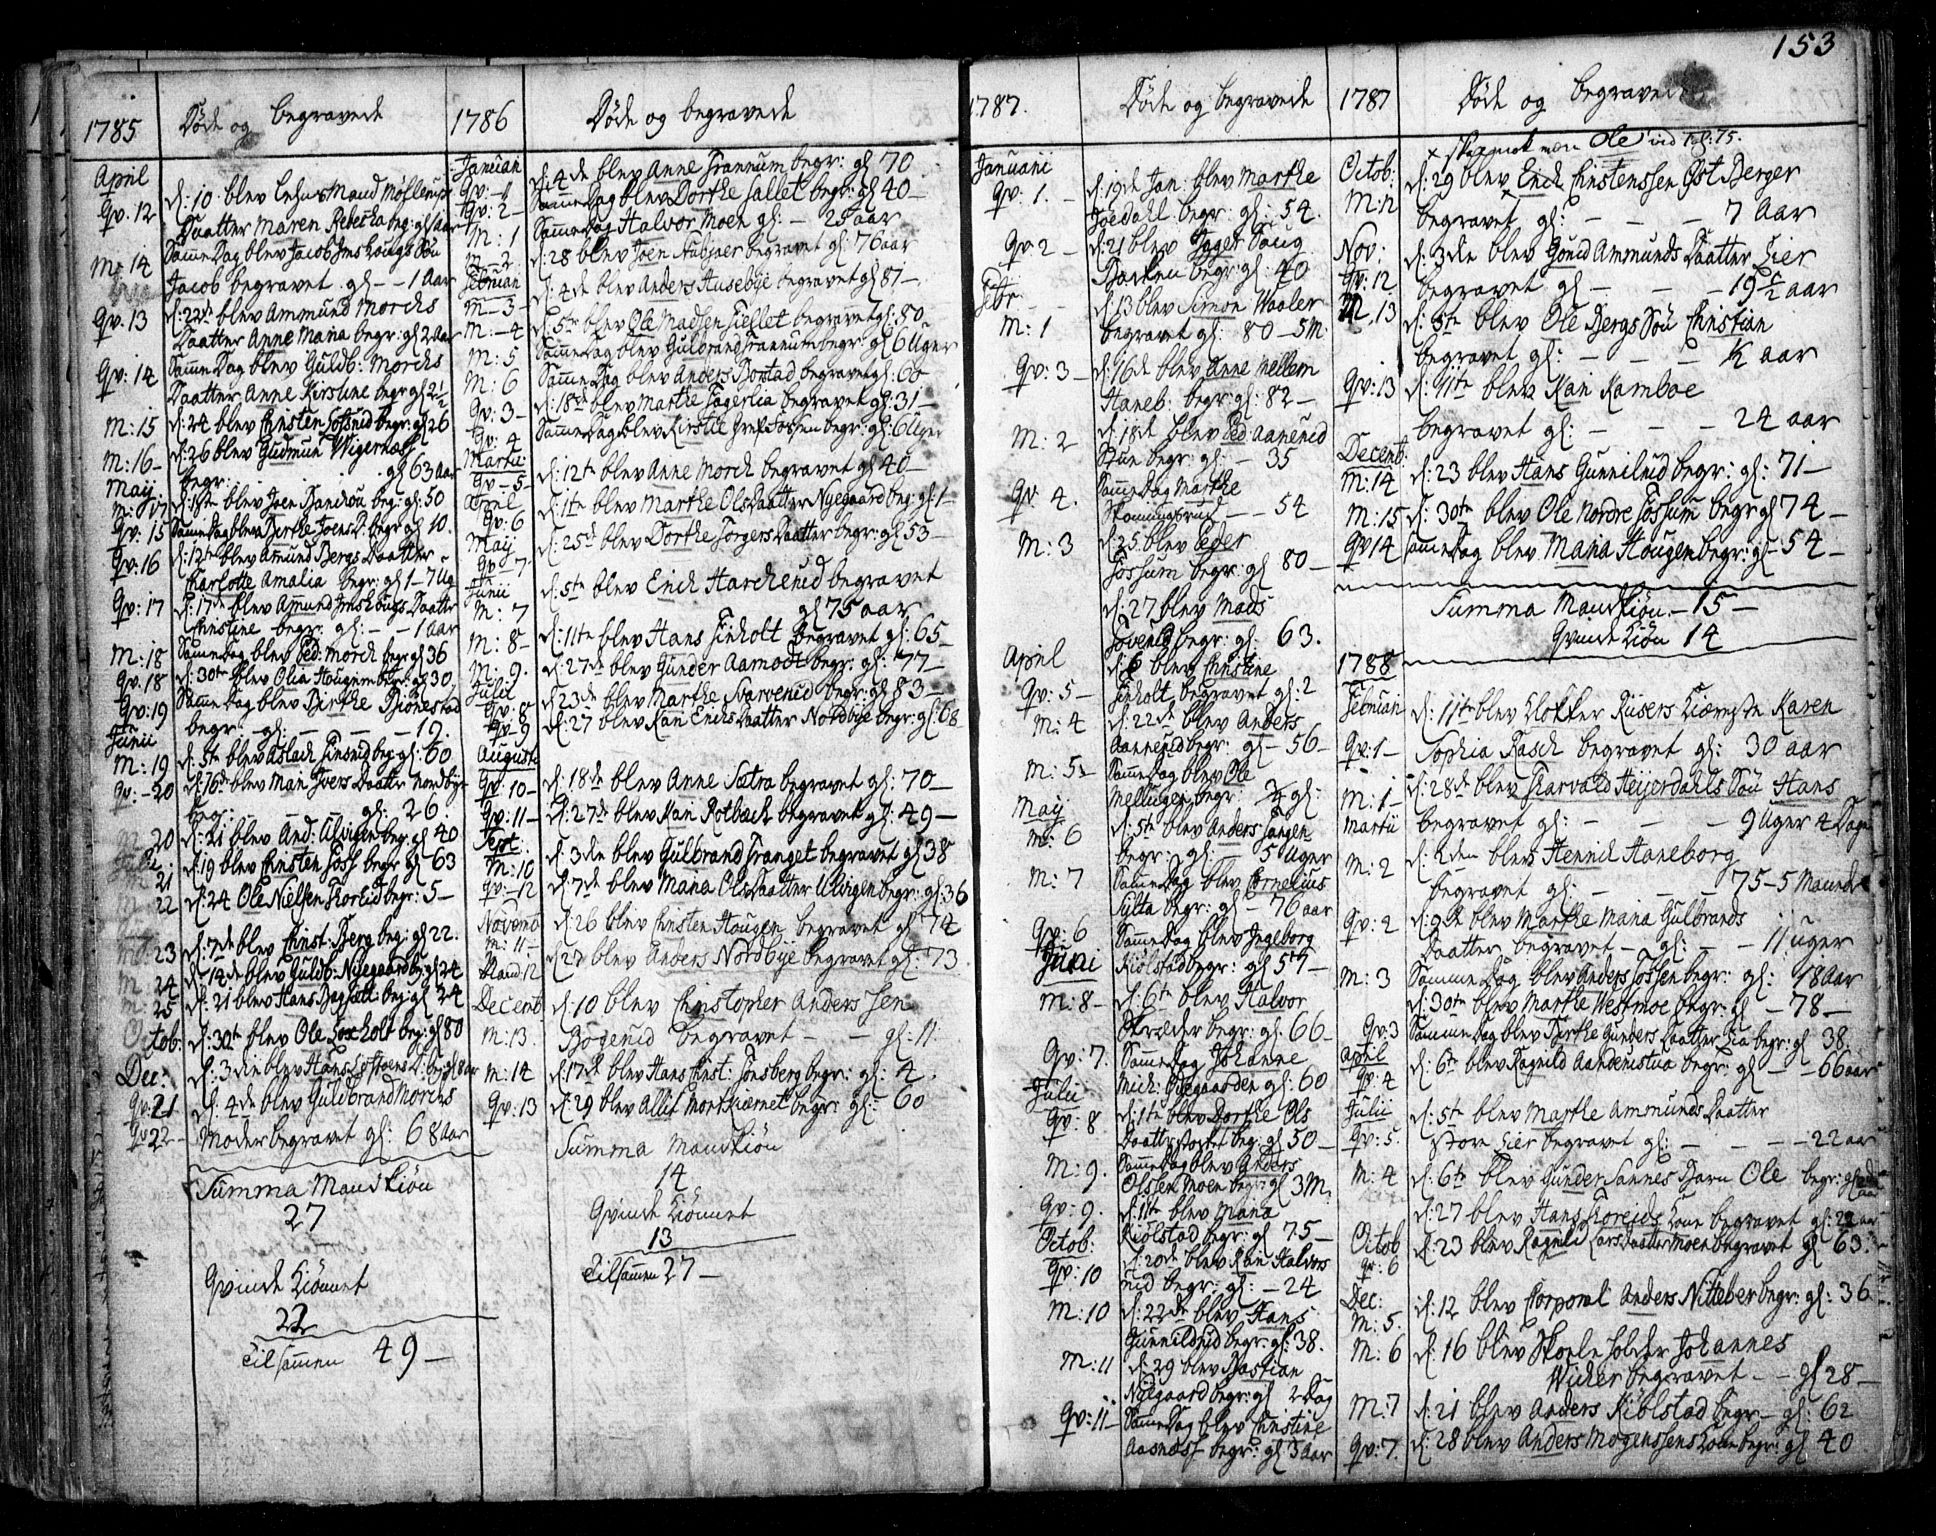 153
1785
Døde og begravede
April
Qv: 12
d: 10 blev
Daatter Maren Rebecka beg: gl aar
M: 14
Samme Dag blev Jacob Søn
Jacob begravet gl – – 1 Aar
Qv: 13
d: 22de blev Ammund Morchs
Daatter Anne Maria begr: gl 2 Aar
Qv: 14
Samme Dag blev Guldb: Morchs
Daatter Anne Kirstine begr gl 2½
M: 15
d: 24 blev Christen begr: gl 26
M: 16 –
d: 26 blev Gudmun Wigernæss
begr: gl 63 aar
May
M: 17
blev Joen beg: gl: 50
Qv: 15
Samme Dag blev Dorthe Joens D: begr gl 10.
Qv: 16
d: 12te blev Amund Bergs Daatter
Charlotte Amalia begr: gl 1 – 7 Ug
Qv: 17
d: 17de blev Amund Daatter
Christine begr: gl: – – 1 aar
M: 18
Samme Dag blev Ped: Morch begr gl 36
Qv. 18
d: 30te blev Olia Hougen begr: gl 30.
Qv: 19
Samme Dag blev Birthe Biönestad
begr – gl: – – – 19.
Junii
M: 19
d: 5te blev Aslach beg: gl: 60
Qv: – 20
d: 16de blev Mari Ivers Daatter Nordbye
begr: – gl: 26
M: 20
d: 21 blev And: Ulvigen beg: gl 40
Julii
M: 21
d: 19 blev Christen Foss begr gl 63
M: 22
d: 24 Ole Nielsen begr: 5 –
M: 23
d: 7de blev Christ: Berg beg: gl 22.
M: 24
d: 14de blev Guldb: Nyegaard beg: gl 24
M: 25
d: 21 blev Hans beg: gl 24
Octob:
d: 30te blev Ole beg: gl 80
Dec:
Qv: 21
d: 3die blev Hans D: beg: gl 8 aar
Qv 22 –
d: 4de blev Guldbrand Morchs
Moder begravet gl: 68 aar
Summa Mandkiön
27
Qvinde Kiönnet
22
Tilsammen 49 –
1786
Døde og begravede
Januari
Qv: – 1
d: 4de blev Anne Trannum begr: gl 70
Qv: 2 –
Samme Dag blev Dorthe begr: gl 40 –
M: 1
Samme Dag Halvor Moen gl: – 25 aar
M – 2
d: 28 blev Joen begravet gl: 76 aar
Februari
M – 3 –
d: 4de blev Anders Husebye begravet gl 87 –
M: – 4
d: 5te blev Ole Madsen begravet gl: 80
M: 5
Samme Dag blev Guldbrand Trannum begr: gl 6 Uger
M: 6
Samme Dag blev Anders begravet gl: 60
Qv: 3 –
d: 18de blev Marthe Fagerlia begravet gl: 31 –
Qv: 4
Samme Dag blev Kirstie begr: gl: 6 Uger
Martii
Qv – 5 –
d: 12te blev Anne Morch begravet gl 40 –
April
Qv: 6
d: 1te blev Marthe Ols Daatter Nyegaard beg: gl: 1 –
May
Qv – 7
d: 25de blev Dorthe Torgers Daatter begr: gl 53 –
Junii
M: 7
d: 5te blev Erich begravet
gl 75 aar
M: 8 –
d: 11te blev Hans Finholt begravet gl: 65 –
M: 9.
d: 27de blev Gunder Aamodt begr: gl: 77 –
Julii
Qv: 8
d 23de blev Marthe begr: gl 83 –
Qv 9
d: 27 blev Kari Erichs Daatter Nordbye begr: gl: 68
Augusti
Qv: 10 –
d: 18de blev Anne Sætra begravet gl: 70 –
Qv: 11 –
d: 27de blev Kari begravet gl: 49 –
Sept.
M: 10
d: 3die blev Gulbrand Tranget begravet gl 38
Qv: – 12
d: 7de blev Maria Ols Daatter Ulvigen begr: gl: 36
Novemb
M: 11 –
d: 26 blev Christen Hougen begravet gl 74
Mand: 12
d 27 blev Anders Nordbye begravet gl: 73
Decemb
M: 13.
d: 10 blev Christopher Anderssen
begravet – – gl: 11
M: 14
d: 17de blev Hans Christ: Tonsberg begr: gl: 4.
Qv: 13
d: 29 blev Allis begr: gl: 60
Summa Mandkiön
14
Qvinde Kiönnet
13
Tilsammen 27 –
1787.
Døde og begravede
Januarii
Qv: 1. –
d: 19de Jan: blev Marthe
begr: gl: 54.
Qv 2 –
d: 21 blev
begr: gl: 40
Febr.
M: 1
d: 13 blev Simon Waaler
begravet gl: 80 – 5 M:
Qv: 3 –
d: 16de blev Anne Mellem
Haneb: begr: gl: 82 –
M: 2
d: 18de blev Ped: Aanerud
begr: gl: – 35
Qv 4.
Samme Dag Marthe
– – 54
M: 3
d: 25 blev Peder
Fossum begr: gl 80 –
d: 27 blev Mads
begr: gl: 63.
April
Qv: 5 –
d: 6 blev Christine
Finholt begravet gl: 2
M: 4
d: 22de blev Anders
Aannerud begr: gl – 56 –
M: 5 –
Samme Dag blev Ole
begr: gl:
May
M: 6
d: 5te blev Anders
begr: gl: – 5 Uger
M: 7
Samme Dag blev Cornelius
Sylta begr: gl – 76 aar
Qv: 6
Samme Dag blev Ingeborg
Kiölstad begr: gl 57 –
Juni
M: 8 –
d: 6te blev Halvor
Skræder begr: gl: 66 –
Qv: 7.
Samme Dag Johanne
Mich: gl: 60
Julii
Qv: 8
d: 1te blev Dorthe Ols
Daatter beg: gl 50 –
M: 9.
Samme Dag blev Anders
Olssen Moen begr: gl 3 M:
Qv: 9.
d: 11te blev Maria
Kiölstad begr: gl 75 –
Octob:
Qv: 10
d: 20de blev Kari Halvors
rud begr: gl: – 24
M: 10
d: 22de blev Hans
Gunnildrud begr: gl: 38.
M: 11
d: 29 blev Bastian
Nyegaard begr: gl 2 Dag
Qv: 11 –
Samme Dag blev Christine
Aasnæss begr: gl: 3 Aar
1787
Døde og begravede
x Ole vid 75.
Octob:
M: 12
d: 29 blev Erich Christenssen Øst Berger
begravet gl: – – – 7 Aar
Nov:
Qv: 12
d: 3die blev Gouid Ammunds Daatter Lier
begravet gl – – – 19½ aar
M. 13
d: 5te blev Ole Bergs Sön Christian
begravet gl: – – – ½ aar
Qv: 13
d: 11te blev Kari Ramboe
begravet gl: – – – 24 aar
Decemb:
M: 14
d: 23 blev Hans Gunnilrud begr: gl: 71 –
M: 15
d: 30te blev Ole Nordre Fossum begr gl 74 –
Qv 14
Samme Dag blev Maria Hougen begr: gl – 54 –
Summa Mandkiön – 15 –
Qvinde Kiön 14
1788
Februari
Qv: 1 –
d: 11te blev Klokker Riisers Kiæreste Karen
Sophia Rasch begravet gl: 30 aar
M: 1 –
d: 28de blev Tharvald Heijerdahls Sön Hans
begravet gl: – – – 9 Uger 4 Dage
Martii
M: 2
d: 2den blev Henrich Haneborg
begravet gl: – – 75 – 5 Maaned
Qv: 2
d: 9de blev Marthe Maria Gulbrands
Daatter begravet – gl: – – 11 uger
M: 3
Samme Dag blev Anders Fossen begr: gl: 18 Aar
d: 30te blev Marthe Westmoe begr: gl – 78 –
Qv: 3
Samme Dag blev Dorthe Gunders Daatter Lia begr: gl 38.
April
Qv: 4
d: 6te blev Ragnild Aanderustua begr: gl – – 66 aar
Julii
Qv: 5.
d: 5te blev Marthe Ammunds Daatter
Store Lier begravet gl: – – – 22 aar
M: 4
d: 6te blev Gunder Sannes Barn Ole begr: gl
d: 27 blev Hans Kone begravet gl: 22 aar
Octob
Qv: 6
d: 23 blev Ragnild Lars Daatter Moen begravet gl 63.
Dec:
M: 5.
d: 12 blev Corporal Anders Nitteber begr: gl: 36
M: 6
d: 16 blev Skoeleholder Johannes
Wicher begravet – – gl 28 –
M: 7
d: 21 blev Anders Kiölstad begr – gl: 62
Qv: 7.
d: 28 blev Anders Mogenssens Kone begr: gl 40